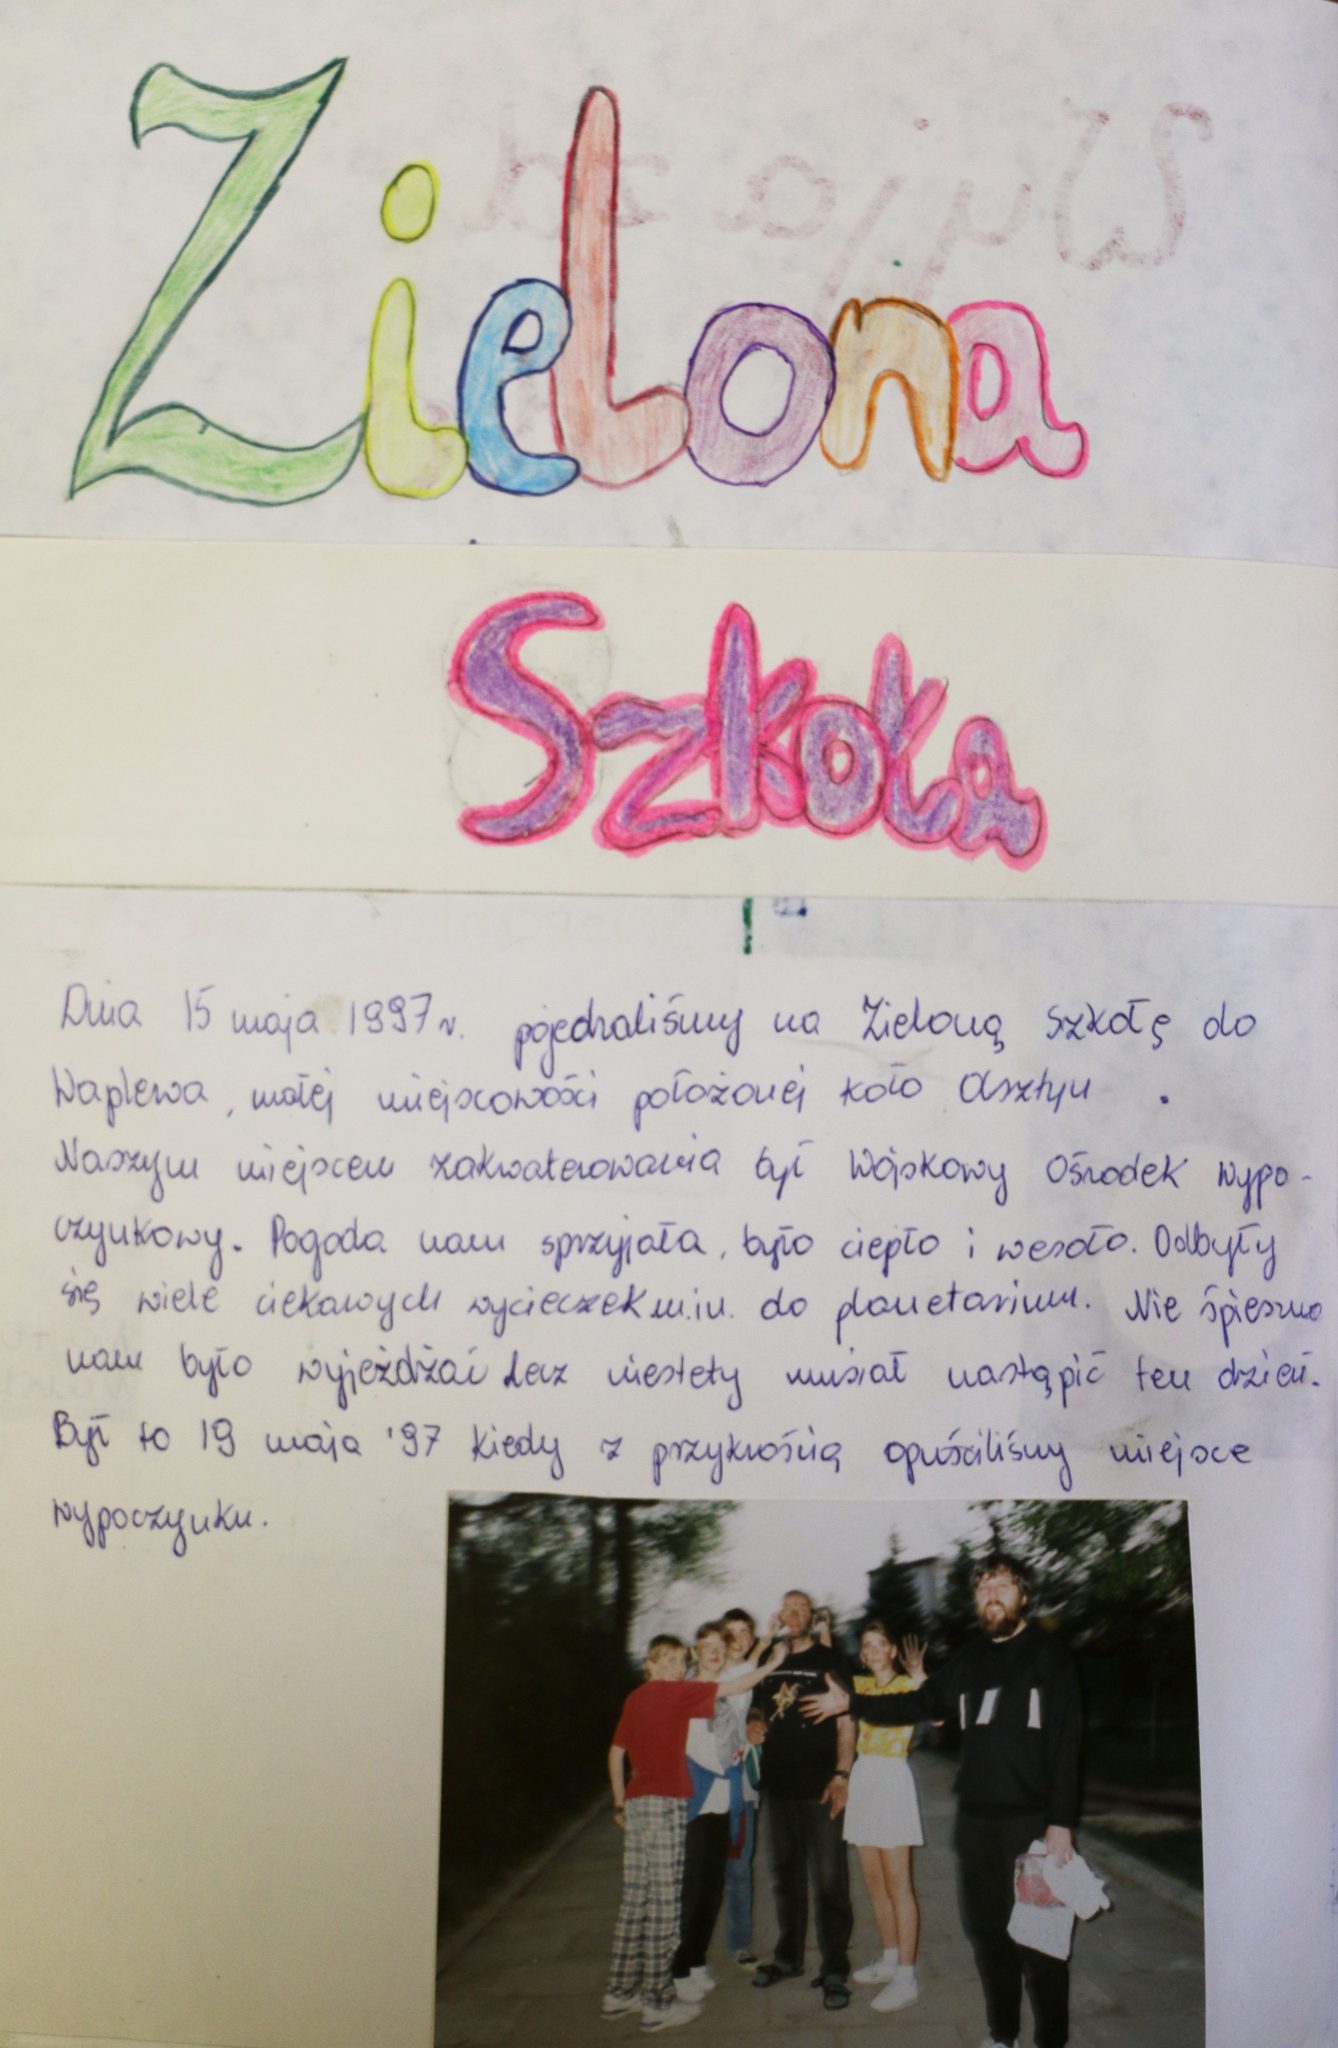 Zielona
Szkoła
Dnia 15 maja 1997r. pojechaliśmy na Zieloną Szkołę do
Waplewa, małej miejscowości położonej koło Olsztyn .
Naszym miejscem zakwaterowania był Wojskowy Ośrodek wypo-
czynkowy. Pogoda nam sprzyjała, było ciepło i wesoło. Odbyły
się wiele ciekawych wycieczek m.in. do planetarium. Nie śpieszno
nam było wyjeżdżać lecz niestety musiał nastąpić ten dzień.
Był to 19 maja '97 kiedy z przykrością opuściliśmy miejsce
wypoczynku.